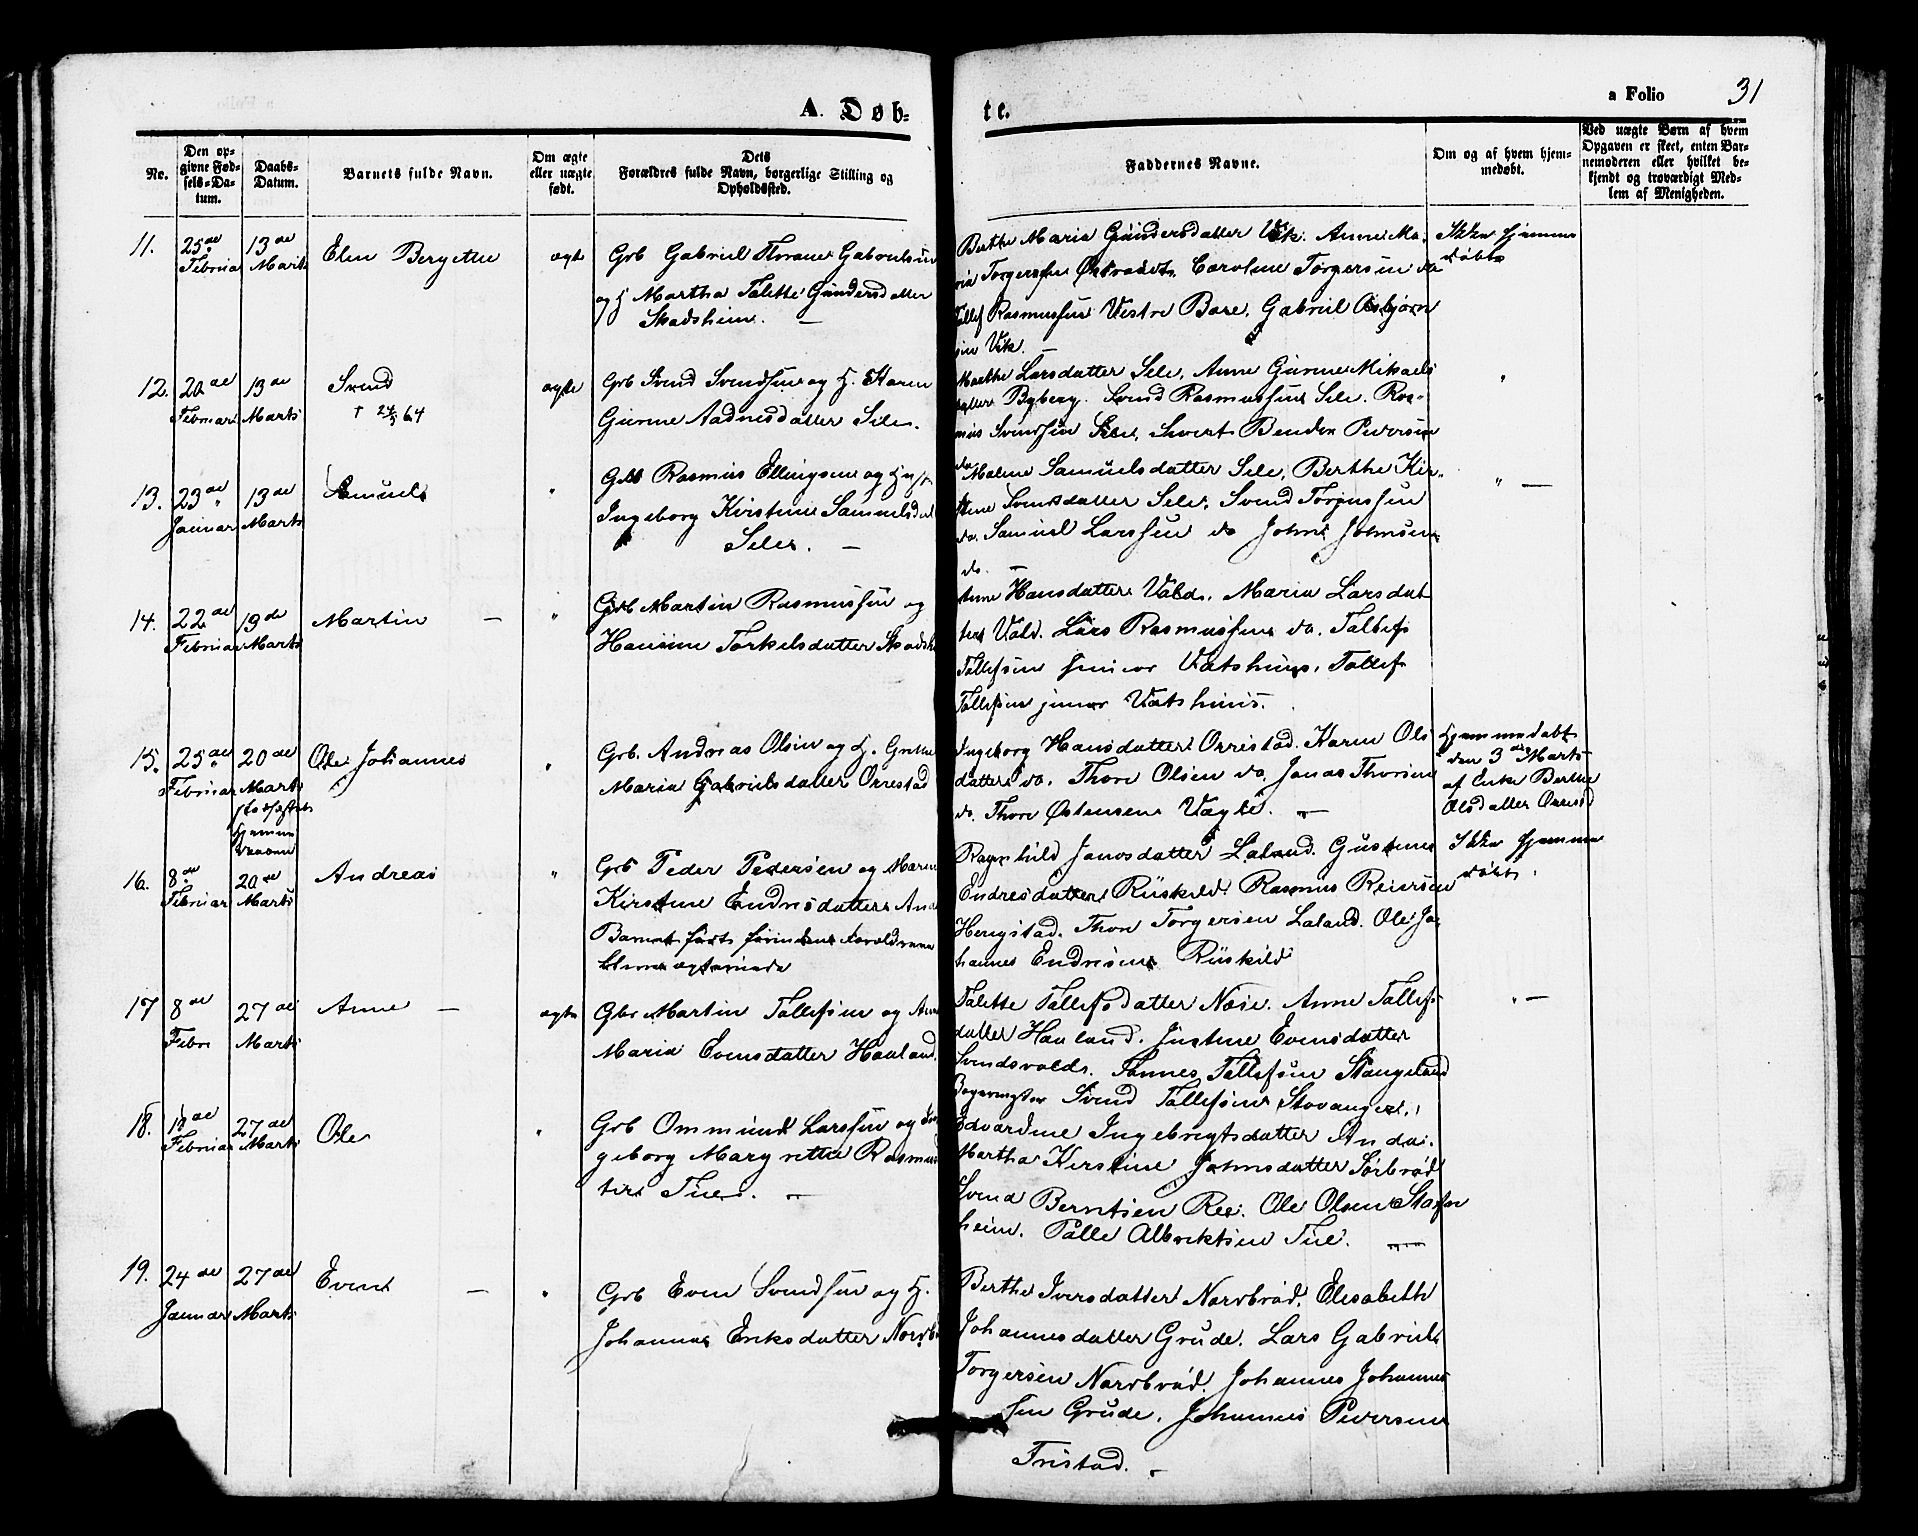 A. Døb-
te.
a Folio 31
No.
Den op-
givne Fød-
sels-Da-
tum.
Daabs-
Datum.
Barnets fulde Navn.
Om ægte
eller uægte
født.
Dets
Forældres fulde Navn, borgerlige Stilling og
Opholdssted.
Faddernes Navne.
Om og af hvem hjem-
medøbt.
Ved uægte Børn af hvem
Opgaven er skeet, enten Bar-
nemoderen eller hvilket be-
kjendt og troværdigt Med-
lem af Menigheden.
11.
25de
Februar
13de
Marts
Elen Bergethe
ægte
Grb Gabriel Gabrielsen
og H Martha Talette Gundersdatter
Skadsheim. —
Berthe Maria Gundersdatter Vik. Anne Ma-
ria Torgersen Caroline Torgersen do
Tollef Rasmussen Vestre Bore. Gabriel Asbjørn
sen Vik. —
Ikke hjemme
døbt
12.
20de
Februar
13de
Marts
Svend
† 24/5 64
ægte
Grb Svend Svendsen og H. Karen
Gurine Aadnesdatter Sele.
Marthe Larsdatter Sele. Anne Gurine Mikaels
datter Byberg. Svend Rasmussen Sele. Ras-
mus Svendsen Sele. Sivert Pedersen
do
"
13.
23de
Januar
13de
Marts
Samuel
"
Grb Rasmus Ellingsen og Hust
Ingeborg Kirstine Samuelsdat
Sele. —
Malene Samuelsdatter Sele. Berthe Kir-
stine Svendsdatter Sele. Svend Torgersen
do. Samuel Larssen do John Johnsen
do. —
" —
14.
22de
Februar
19de
Marts
Martin —
"
Grb Martin Rasmussen og
Torkelsdatter Skadsh
Anne Hansdatter Vold. Maria Larsdat
ter Vold. Lars Rasmussen do. Tollef
Tollefsen senior Vatshuus. Tollef
Tollefsen junior Vatshuus.
15.
25de
Februar
20de
Marts
stadfæstet
hjemme
daaben
Ole Johannes
"
Grb. Andreas Olsen og H. Grethe
Maria Gabrielsdatter Orrestad
Ingeborg Hansdatter Orrestad. Karen Ols
datter do. Thore Olsen do. Jonas Thorsen
do. Thore Østensen Vagle. —
Hjemmedøbt
den 3de Marts
af Enke Berthe
Olsdatter Orrest
16.
8de
Februar
20de
Marts
Andreas
"
Grb Peder Pedersen og Maren
Kirstine Endresdatter
Barnet født førend Forældrene
blive ægteviede
Ragnhild Janosdatter Laland. Gustine
Endresdatter Riiskild. Rasmus Reiersen
Herigstad. Thore Torgersen Laland. Ole Jo-
hannes Endresen Riiskild
Ikke hjemme
døbt.
17
8de
Febr
27de
Marts
Anne —
ægte
Gbr Martin Tollefsen og Ane
Maria Evensdatter Haaland.
Talette Tollefsdatter Næse. Anne Tollefs
datter Haaland. Justine Evensdatter
Svendsvold. Tønnes Tollefsen Stangeland
Svend Tollefsen Stavanger.
" —
18.
Februar
27de
Marts
Ole
"
Grb Ommund Larssen og In
geborg Margrethe Rasmusd
ter Tue. —
Edvardine Ingebregtsdatter Anda.
Martha Kirstine Johnsdatter Sørbrød
Svend Berntsen Ree. Ole Olsen
heim. Palle Albrektsen Tue. —
19.
24de
Januar
27de
Marts
Even —
"
Grb Even Svendsen og H.
Johanna Eriksdatter Nordb
Berthe Iversdatter Nordbrød. Elisabeth
Johannesdatter Grude. Lars Gabriel
Torgersen Nordbrød. Johannes Johannes
sen Grude. Johannes Pedersen
Tristad. —